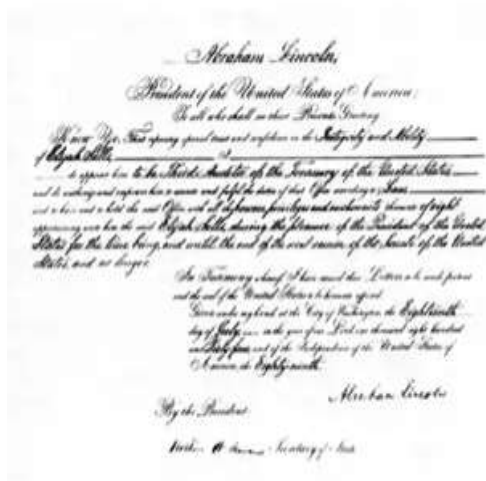 Abraham Lincoln,
President of the United States of America;
To all who shall see these Presents Greeting
Know Ye, That reposing special trust and confidence in the Integrity and Ability
of Elijah
to appoint him to be Third Auditor of the Treasury of the United States
and do authorize and empower him to execute and fulfil the duties of that Office according to Law
and to have and to hold the said Office with all the powers, privileges and emoluments thereunto of right
appertaining unto him the said Elijah Sells, during the pleasure of the President of the United
States for the time being, and until the end of the next session of the Senate of the United
States, and no longer.
In Testimony whereof I have caused these Letters to be made patent
and the seal of the United States to be hereunto affixed
Given under my hand at the City of Washington the Eighteenth
day of July in the year of our Lord one thousand eight hundred
and Sixty four and of the Independence of the United States of
America the Eighty ninth
Abraham Lincoln
By the President
Secretary of State